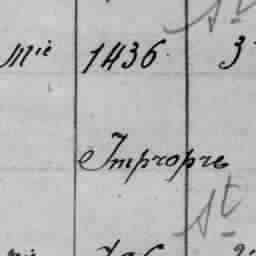 St
Mie 1436. 3
Impropre
St